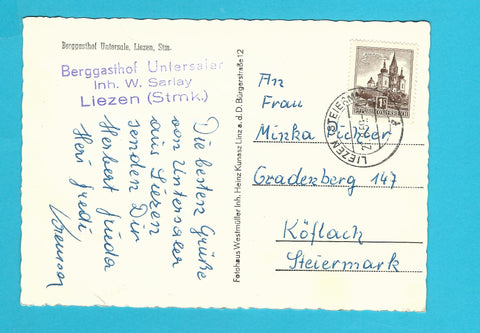 Berggasthof Untersaler, Liezen, Stm.
Berggasthof Untersaler
Inh. W. Sarlay
Liezen (Stmk.)
Die besten Grüße
von Untersaler
aus Liezen
senden Dir
Herbert
Heri Fredi
Fotohaus Westmüller Inh. Heinz Kunasz Linz a. d. D. Bürgerstraße 12
LIEZEN
An
Frau
Minka Pichler
Gradenberg 147
Köflach
Steiermark